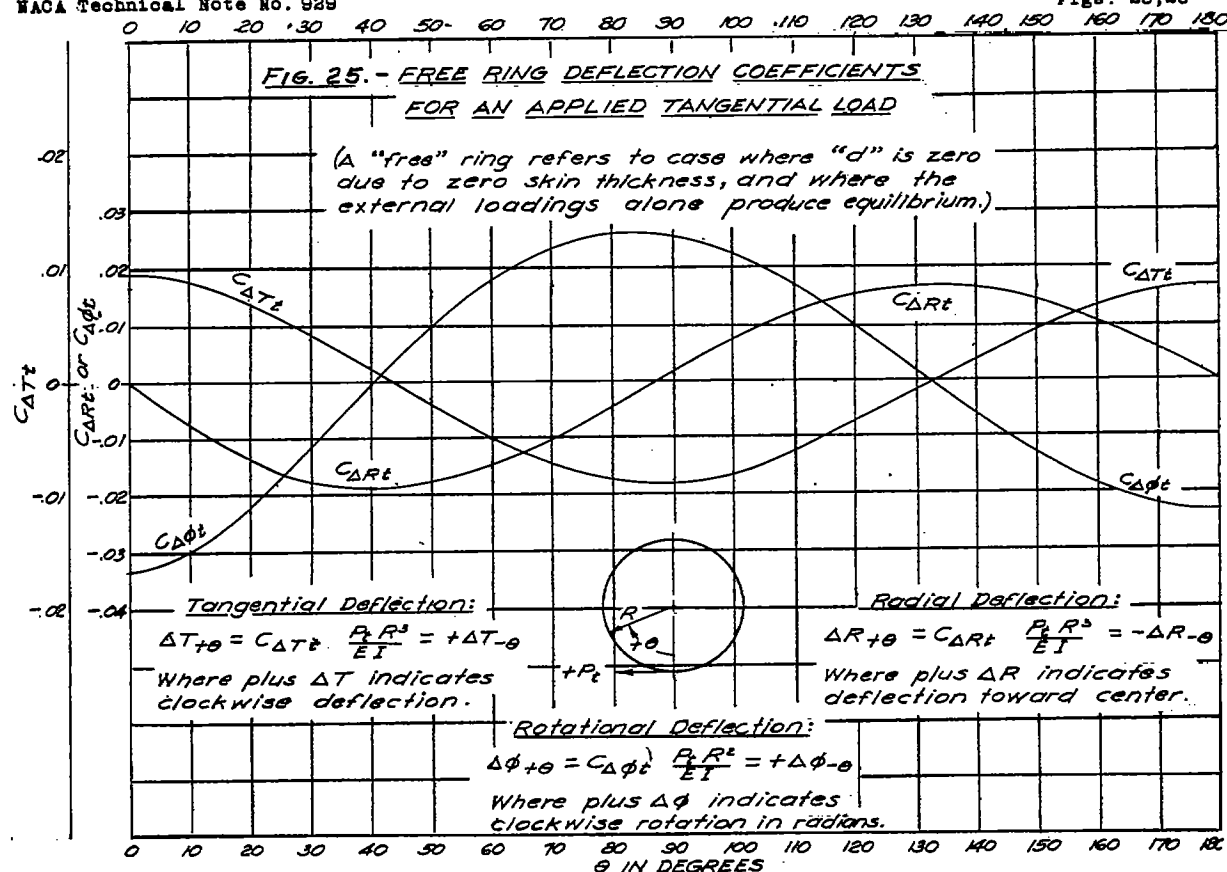 NACA Technical Note No. 929
Figs.
0 10 20 30 40 50 60 70 80 90 100 110 120 130 140 150 160 170 180
FIG. 25.- FREE RING DEFLECTION COEFFICIENTS
FOR AN APPLIED TANGENTIAL LOAD
(A "free" ring refers to case where "d" is zero
due to zero skin thickness, and where the
external loadings alone produce equilibrium.)
.02
.01
0
-.01
-.02
CΔTt
.03
.02
.01
0
-.01
-.02
-.03
-.04
CΔRt or CΔϕt
CΔTt
CΔRt
CΔϕt
CΔTt
CΔRt
CΔϕt
Tangential Deflection:
ΔT+θ = CΔTt PtR³/EI = +ΔT-θ
Where plus ΔT indicates
clockwise deflection.
R
+θ
+Pt
Radial Deflection:
ΔR+θ = CΔRt PtR³/EI = -ΔR-θ
Where plus ΔR indicates
deflection toward center.
Rotational Deflection:
Δϕ+θ = CΔϕt PtR²/EI = +Δϕ-θ
Where plus Δϕ indicates
clockwise rotation in radians.
0 10 20 30 40 50 60 70 80 90 100 110 120 130 140 150 160 170 180
θ IN DEGREES